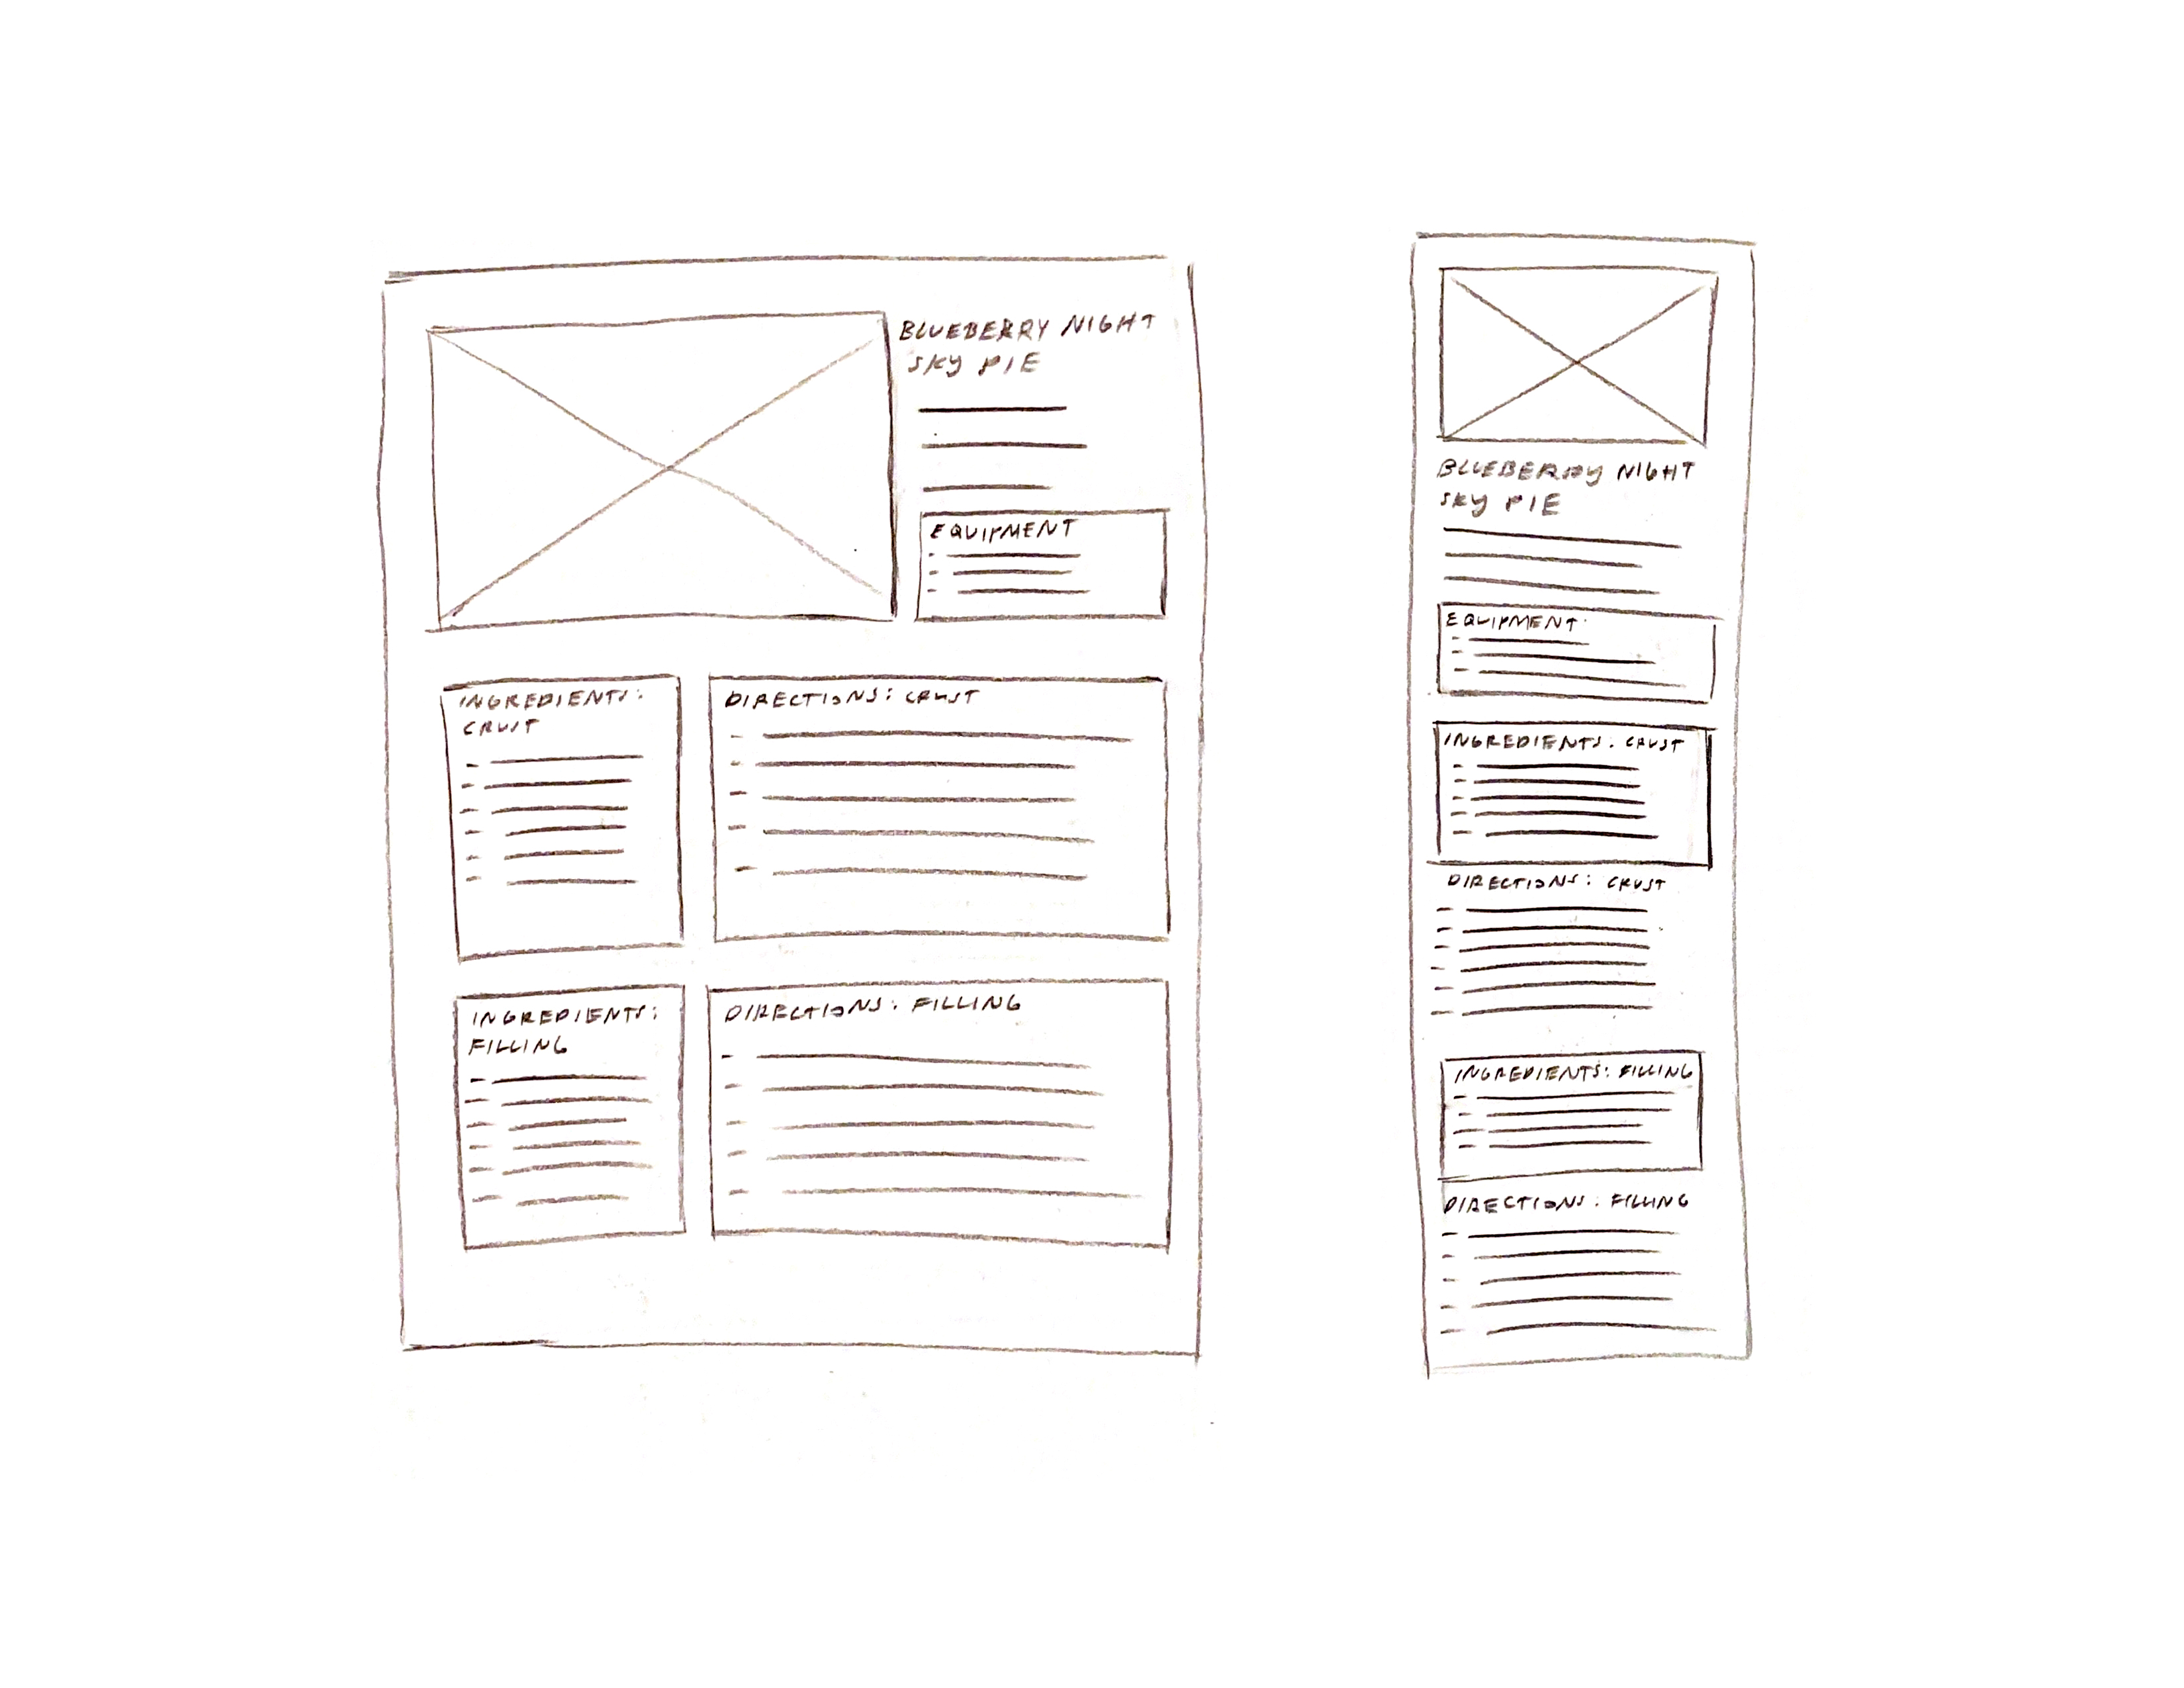 BLUEBERRY NIGHT
SKY PIE
EQUIPMENT
INGREDIENTS:
CRUST
DIRECTIONS: CRUST
INGREDIENTS:
FILLING
DIRECTIONS: FILLING
BLUEBERRY NIGHT
SKY PIE
EQUIPMENT
INGREDIENTS: CRUST
DIRECTIONS: CRUST
INGREDIENTS: FILLING
DIRECTIONS: FILLING